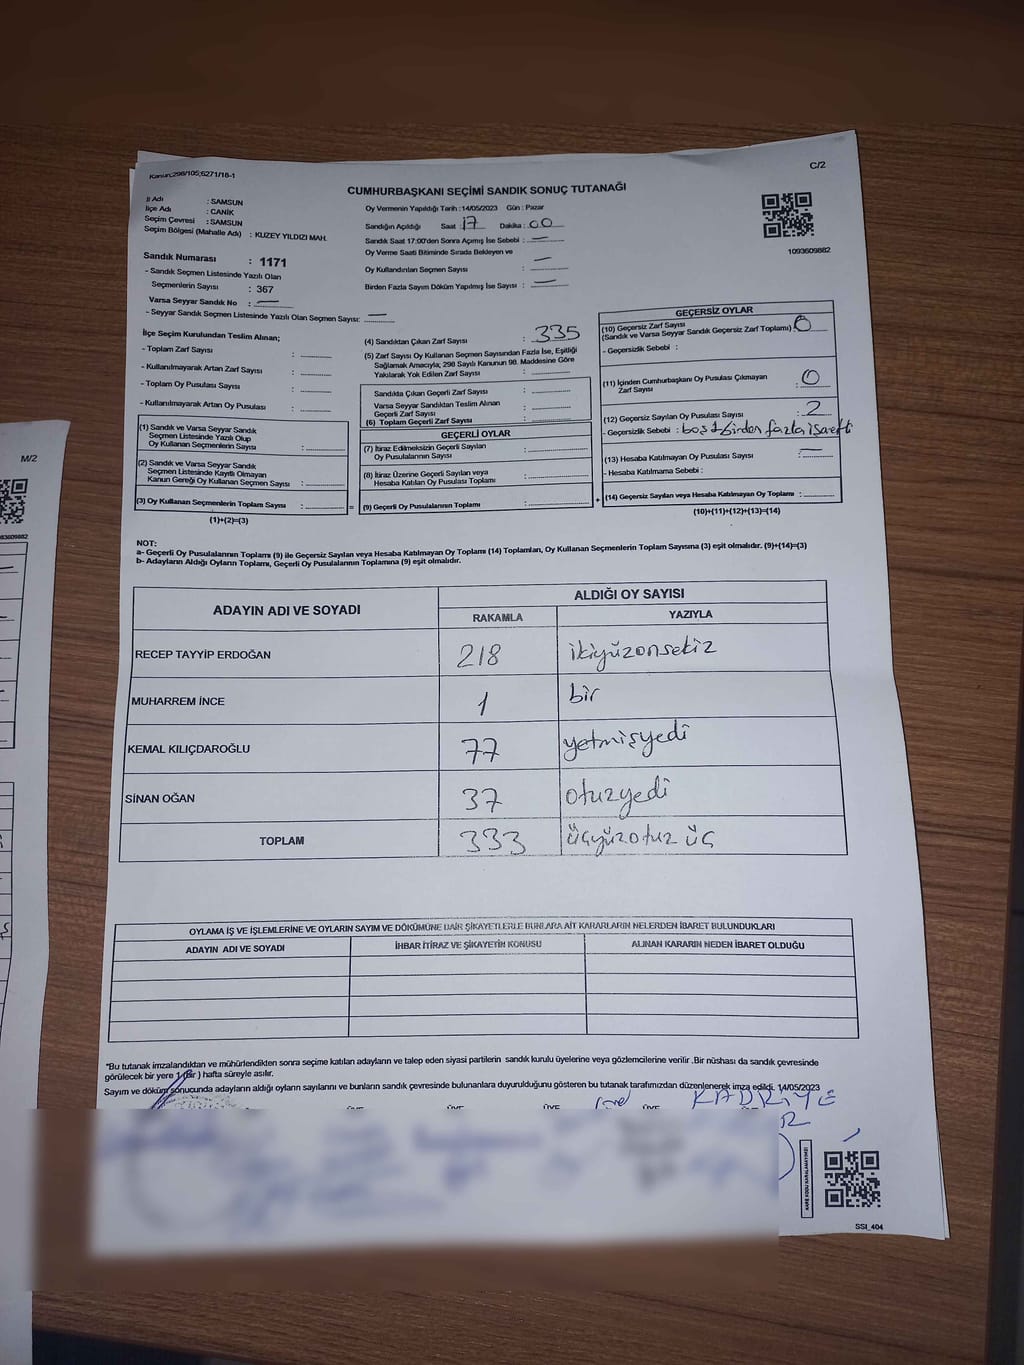 Kanun;298/105;6271/18-1
C/2
CUMHURBAŞKANI SEÇİMİ SANDIK SONUÇ TUTANAĞI
İl Adı : SAMSUN
İlçe Adı : CANİK
Seçim Çevresi : SAMSUN
Seçim Bölgesi (Mahalle Adı) : KUZEY YILDIZI MAH.
Sandık Numarası : 1171
- Sandık Seçmen Listesinde Yazılı Olan
Seçmenlerin Sayısı : 367
Varsa Seyyar Sandık No : —
- Seyyar Sandık Seçmen Listesinde Yazılı Olan Seçmen Sayısı: —
Oy Vermenin Yapıldığı Tarih :14/05/2023 Gün : Pazar
Sandığın Açıldığı Saat : 17 Dakika : 00
Sandık Saat 17:00'den Sonra Açımış İse Sebebi : —
Oy Verme Saati Bitiminde Sırada Bekleyen ve
Oy Kullandırılan Seçmen Sayısı : —
Birden Fazla Sayım Döküm Yapılmış İse Sayısı : —
1093609882
İlçe Seçim Kurulundan Teslim Alınan;
- Toplam Zarf Sayısı :
- Kullanılmayarak Artan Zarf Sayısı :
- Toplam Oy Pusulası Sayısı :
- Kullanılmayarak Artan Oy Pusulası :
(1) Sandık ve Varsa Seyyar Sandık
Seçmen Listesinde Yazılı Olup
Oy Kullanan Seçmenlerin Sayısı :
(2) Sandık ve Varsa Seyyar Sandık
Seçmen Listesinde Kayıtlı Olmayan
Kanun Gereği Oy Kullanan Seçmen Sayısı :
(3) Oy Kullanan Seçmenlerin Toplam Sayısı :
(1)+(2)=(3)
(4) Sandıktan Çıkan Zarf Sayısı : 335
(5) Zarf Sayısı Oy Kullanan Seçmen Sayısından Fazla İse, Eşitliği
Sağlamak Amacıyla; 298 Sayılı Kanunun 98. Maddesine Göre
Yakılarak Yok Edilen Zarf Sayısı :
Sandıkta Çıkan Geçerli Zarf Sayısı :
Varsa Seyyar Sandıktan Teslim Alınan
Geçerli Zarf Sayısı :
(6) Toplam Geçerli Zarf Sayısı :
GEÇERLİ OYLAR
(7) İtiraz Edilmeksizin Geçerli Sayılan
Oy Pusulalarının Sayısı :
(8) İtiraz Üzerine Geçerli Sayılan veya
Hesaba Katılan Oy Pusulaları Toplamı :
= (9) Geçerli Oy Pusulalarının Toplamı :
GEÇERSİZ OYLAR
(10) Geçersiz Zarf Sayısı
(Sandık ve Varsa Seyyar Sandık Geçersiz Zarf Toplamı) : 0
- Geçersizlik Sebebi :
(11) İçinden Cumhurbaşkanı Oy Pusulası Çıkmayan
Zarf Sayısı : 0
(12) Geçersiz Sayılan Oy Pusulası Sayısı : 2
- Geçersizlik Sebebi : boş+birden fazla işaretli
(13) Hesaba Katılmayan Oy Pusulası Sayısı : —
- Hesaba Katılmama Sebebi :
+ (14) Geçersiz Sayılan veya Hesaba Katılmayan Oy Toplamı :
(10)+(11)+(12)+(13)=(14)
NOT:
a- Geçerli Oy Pusulalarının Toplamı (9) ile Geçersiz Sayılan veya Hesaba Katılmayan Oy Toplamı (14) Toplamları, Oy Kullanan Seçmenlerin Toplam Sayısına (3) eşit olmalıdır. (9)+(14)=(3)
b- Adayların Aldığı Oyların Toplamı, Geçerli Oy Pusulalarının Toplamına (9) eşit olmalıdır.
ADAYIN ADI VE SOYADI ALDIĞI OY SAYISI
RAKAMLA YAZIYLA
RECEP TAYYİP ERDOĞAN 218 ikiyüzonsekiz
MUHARREM İNCE 1 bir
KEMAL KILIÇDAROĞLU 77 yetmişyedi
SİNAN OĞAN 37 otuzyedi
TOPLAM 333 üçyüzotuz üç
OYLAMA İŞ VE İŞLEMLERİNE VE OYLARIN SAYIM VE DÖKÜMÜNE DAİR ŞİKAYETLERLE BUNLARA AİT KARARLARIN NELERDEN İBARET BULUNDUKLARI
ADAYIN ADI VE SOYADI İHBAR İTİRAZ VE ŞİKAYETİN KONUSU ALINAN KARARIN NEDEN İBARET OLDUĞU
*Bu tutanak imzalandıktan ve mühürlendikten sonra seçime katılan adayların ve talep eden siyasi partilerin sandık kurulu üyelerine veya gözlemcilerine verilir .Bir nüshası da sandık çevresinde
görülecek bir yere 1 (Bir ) hafta süreyle asılır.
Sayım ve döküm sonucunda adayların aldığı oyların sayılarını ve bunların sandık çevresinde bulunanlara duyurulduğunu gösteren bu tutanak tarafımızdan düzenlenerek imza edildi. 14/05/2023
ÜYE ÜYE ÜYE ÜYE KADRİYE
SSI_404
M/2